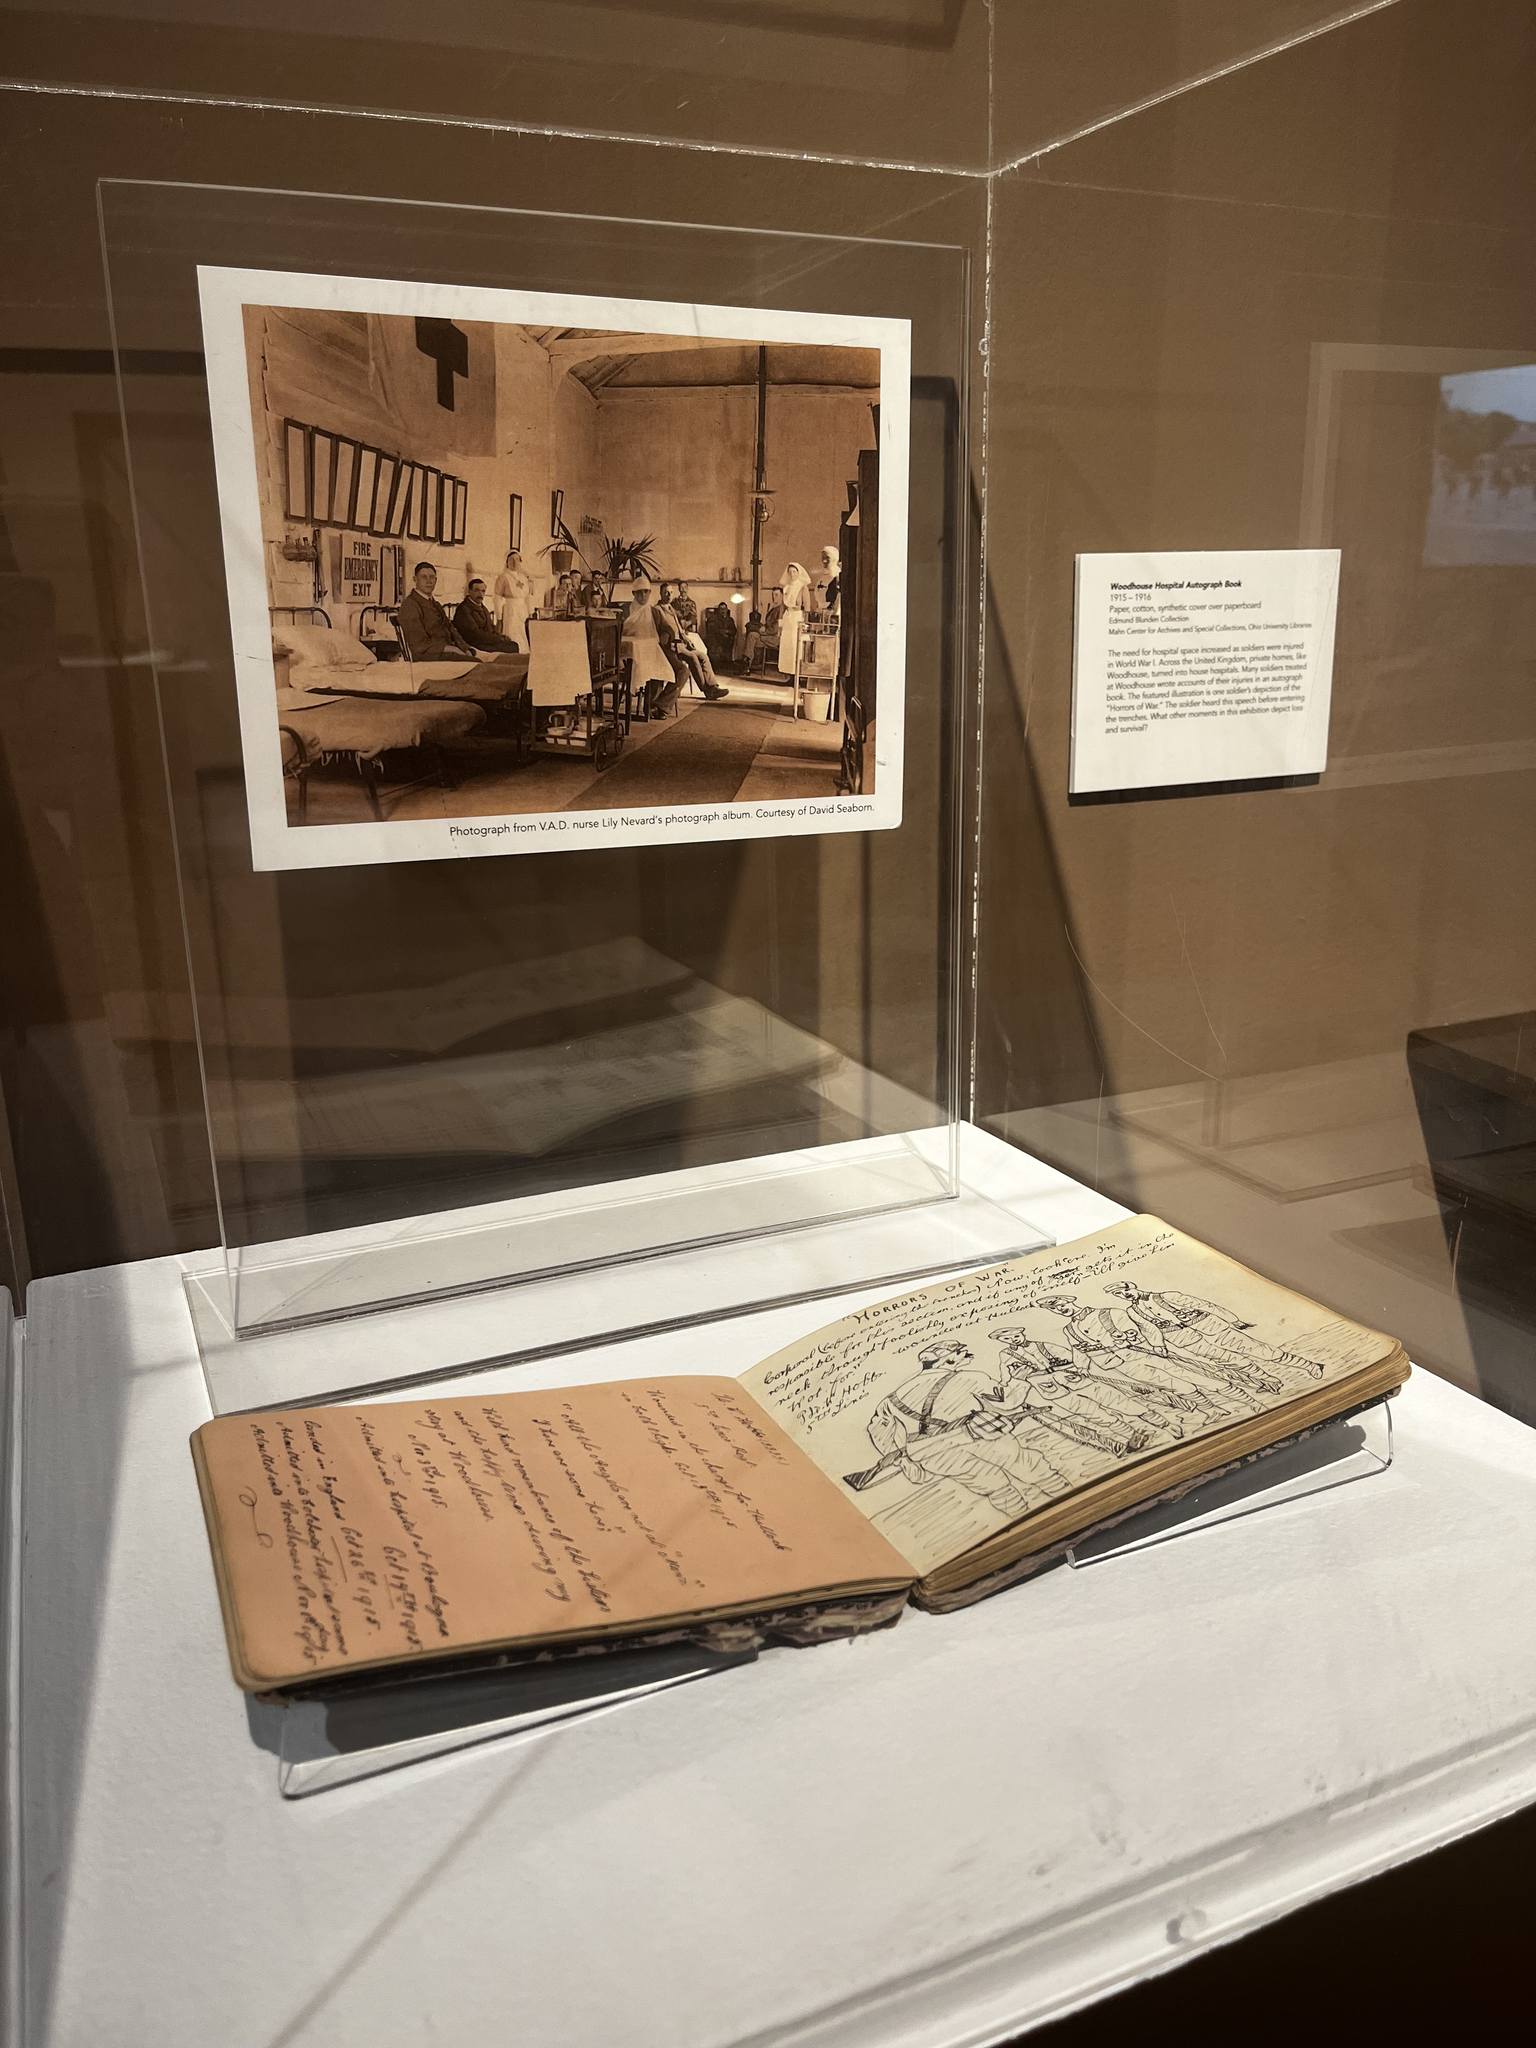 FIRE
EMERGENCY
EXIT
Photograph from V.A.D. nurse Lily Nevard's photograph album. Courtesy of David Seaborn.
Woodhouse Hospital Autograph Book
1915 – 1916
Paper, cotton, synthetic cover over paperboard
Edmund Blunden Collection
Mahn Center for Archives and Special Collections, Ohio University Libraries
The need for hospital space increased as soldiers were injured
in World War I. Across the United Kingdom, private homes, like
Woodhouse, turned into house hospitals. Many soldiers treated
at Woodhouse wrote accounts of their injuries in an autograph
book. The featured illustration is one soldier's depiction of the
"Horrors of War." The soldier heard this speech before entering
the trenches. What other moments in this exhibition depict loss
and survival?
"HORRORS OF WAR."
Corporal (before entering the trenches) Now, look 'ere. I'm
responsible for this section, and if any of gets it in the
neck through foolishly exposing of 'imself – I'll give him
wot for."
wounded at Hulluch
Hobbs.
5th Lines
Wounded in the charge for Hulluch
Oct 13th 1915
"All the Angels are not at "Mons"
There are some here;"
With kind remembrance of the Sisters
and the happy times during my
stay at Woodhouse.
Nov 9th 1915.
Admitted into hospital at Boulogne
Oct 19th 1915.
Landed in England Oct 26th 1915.
Admitted into Colchester hospital same day.
Admitted into Woodhouse Nov 1915